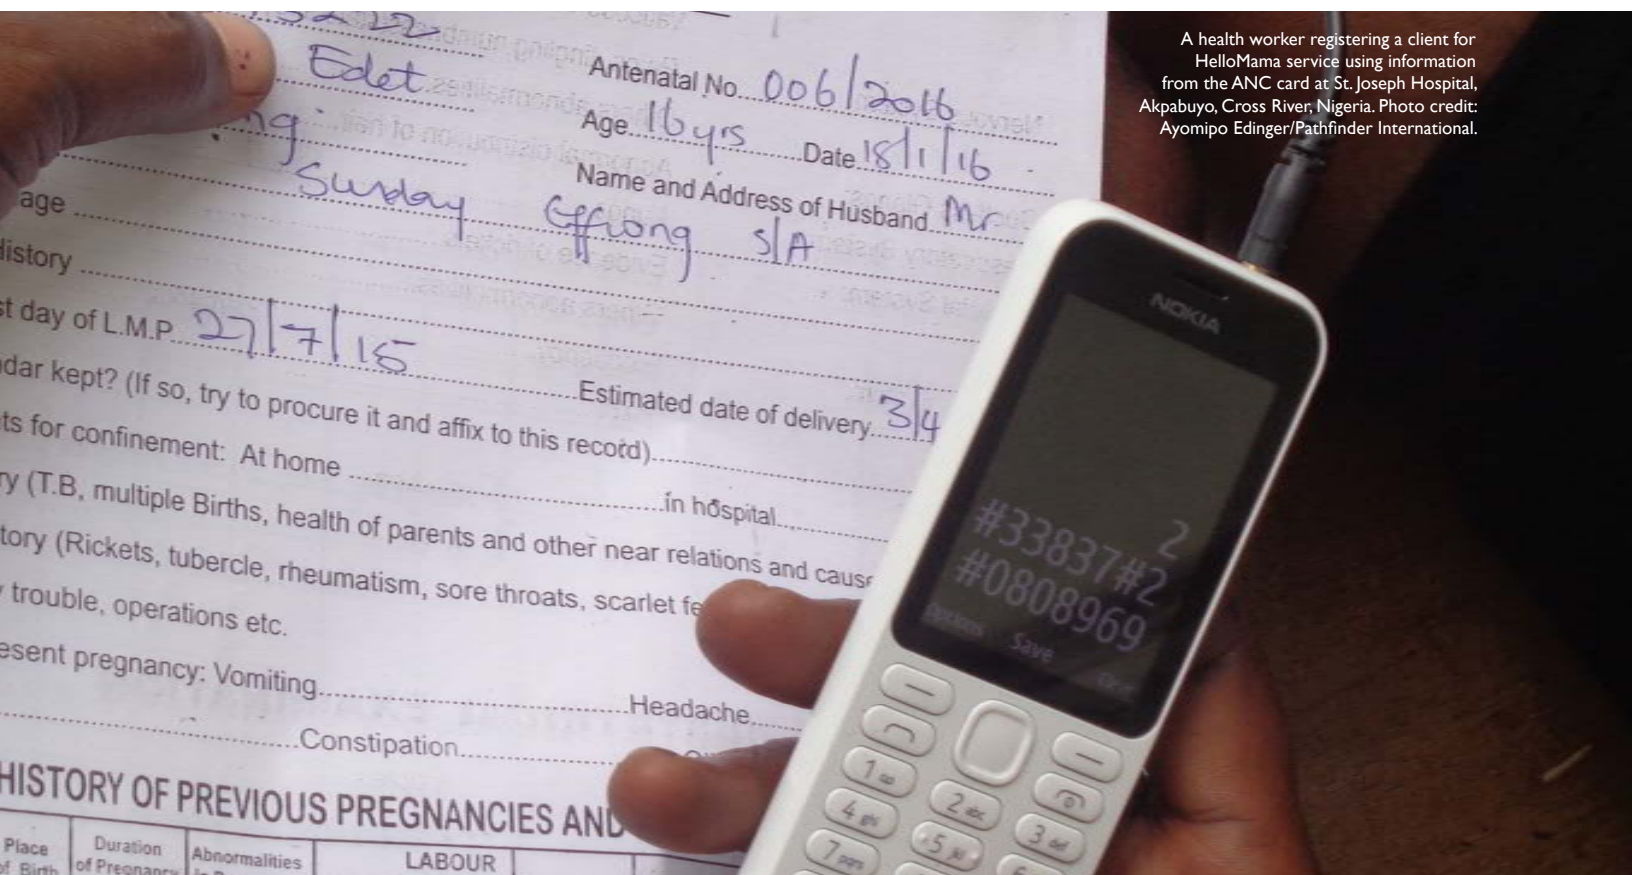 A health worker registering a client for
HelloMama service using information
from the ANC card at St. Joseph Hospital,
Akpabuyo, Cross River, Nigeria. Photo credit:
Ayomipo Edinger/Pathfinder International.
Edet Antenatal No. 006/2016
Age 16 yrs Date 18/1/16
Name and Address of Husband Mr
Sunday Effiong S/A
age
History
st day of L.M.P. 27/7/15 Estimated date of delivery 3/4
dar kept? (If so, try to procure it and affix to this record)
ts for confinement: At home in hospital
ry (T.B, multiple Births, health of parents and other near relations and cause
tory (Rickets, tubercle, rheumatism, sore throats, scarlet fe
trouble, operations etc.
esent pregnancy: Vomiting Headache
Constipation
HISTORY OF PREVIOUS PREGNANCIES AND
Place Duration Abnormalities LABOUR
of Birth of Pregnancy
NOKIA
2
#33837#2
#0808969
Options Save
1
2 abc
3 def
4 ghi
5 jkl
7 pqrs